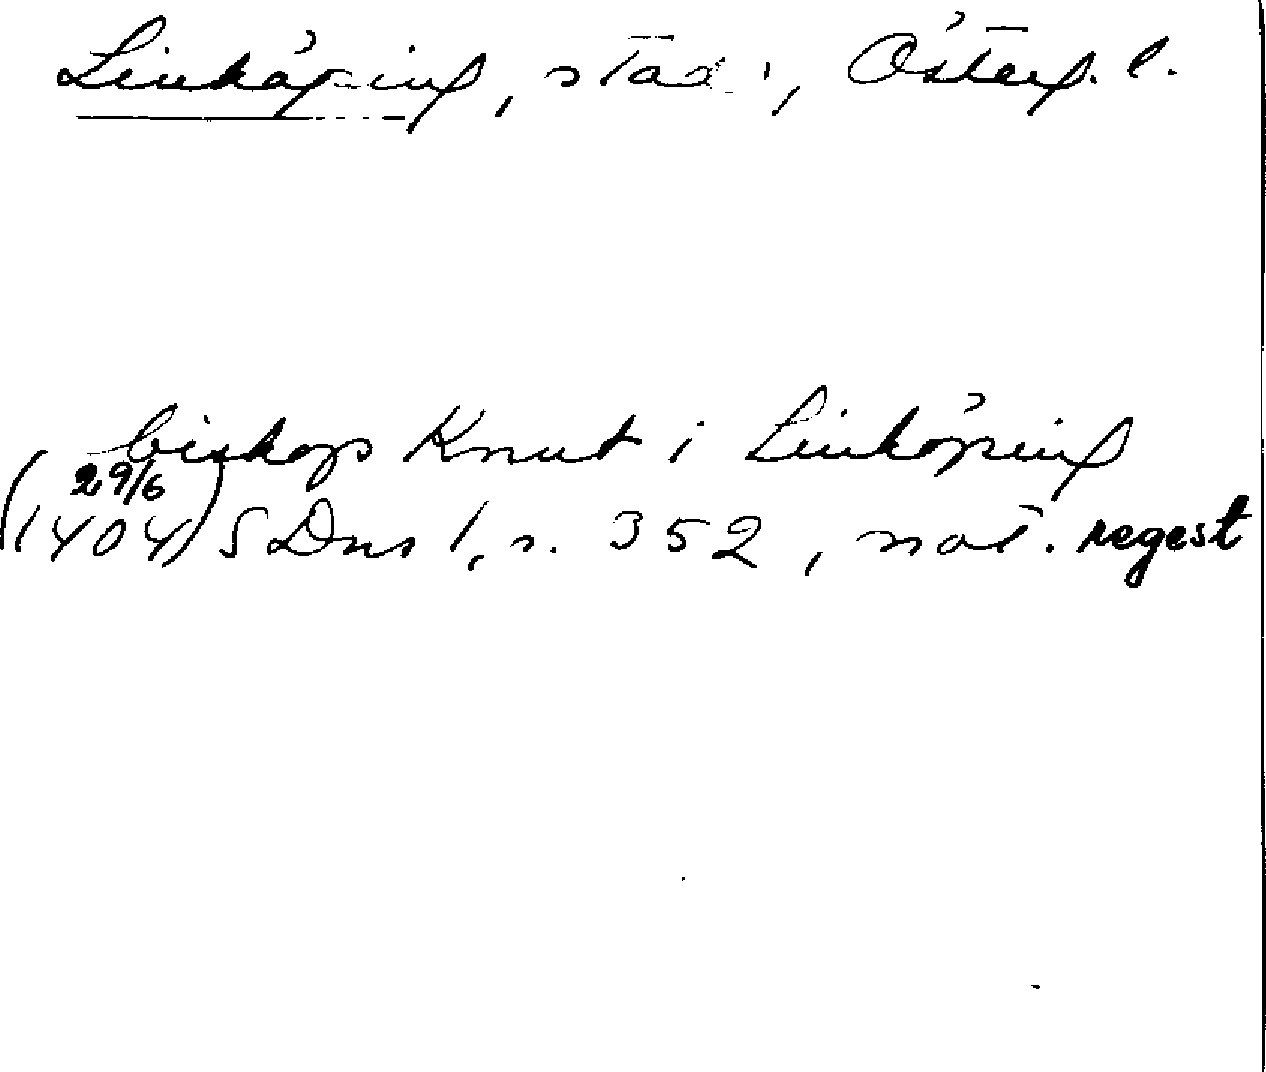 Linköping, stad, Österg. l.
biskop Knut i Linköping
(29/6 1404) SDns 1, s. 352, not. regest